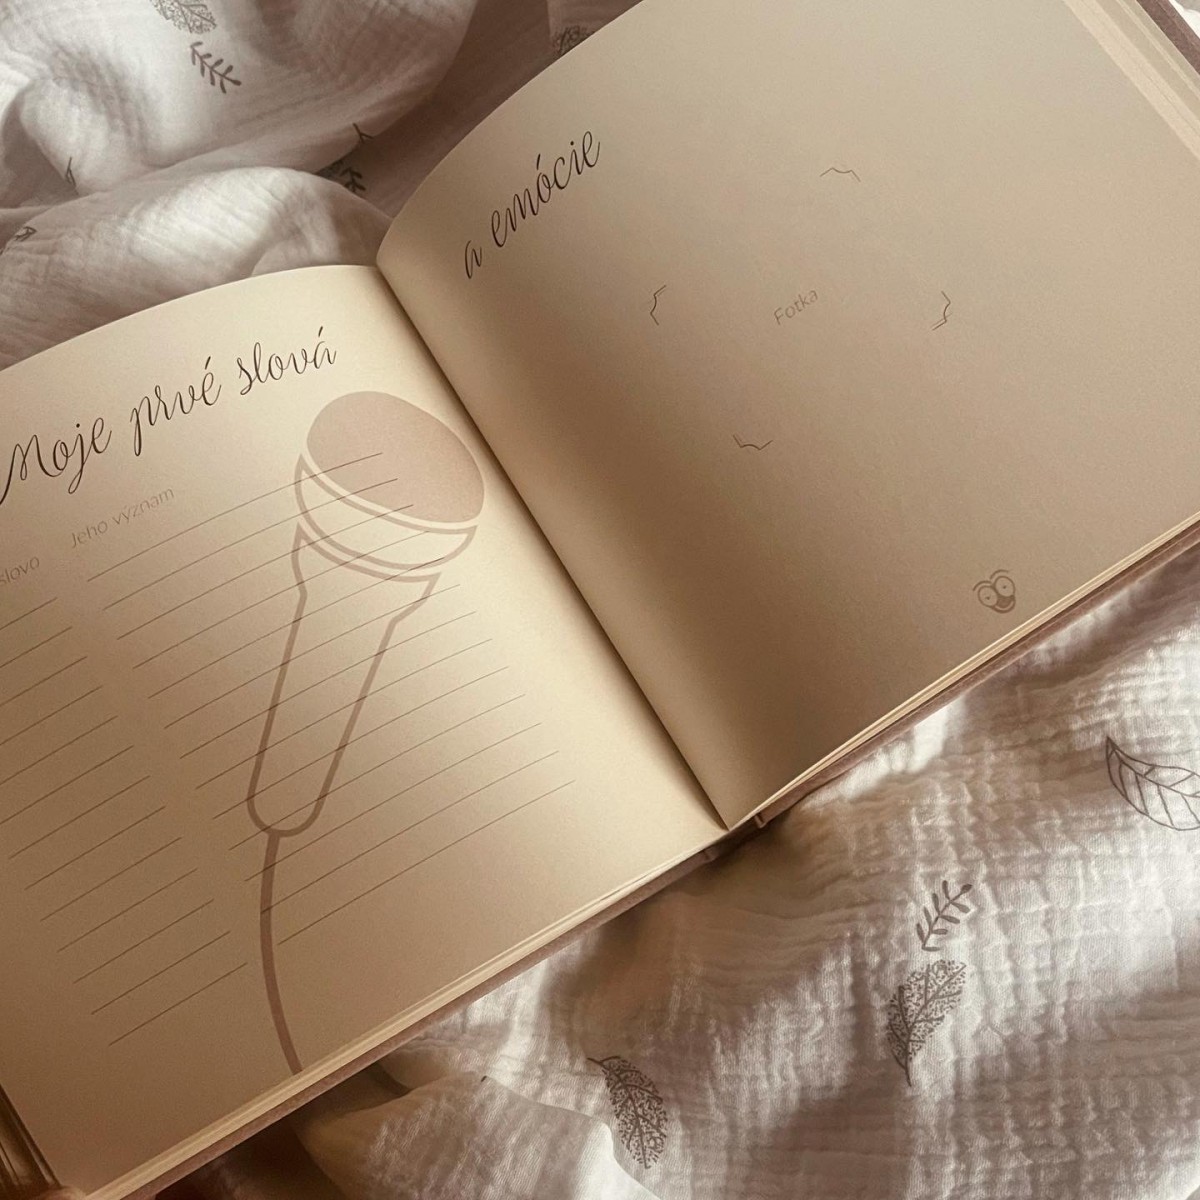 Moje prvé slová
slovo
Jeho význam
a emócie
Fotka